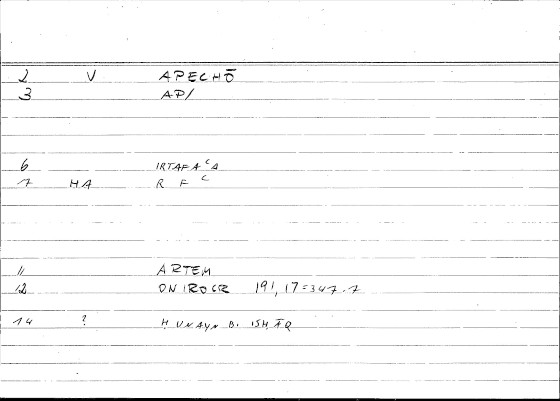 2 V APECHŌ
3 AP/
6 IRTAFAᶜA
7 HA R F ᶜ
11 ARTEM
12 ONIROCR 191,17=347.7
14 ? ḤUNAYN B. ISḤĀQ